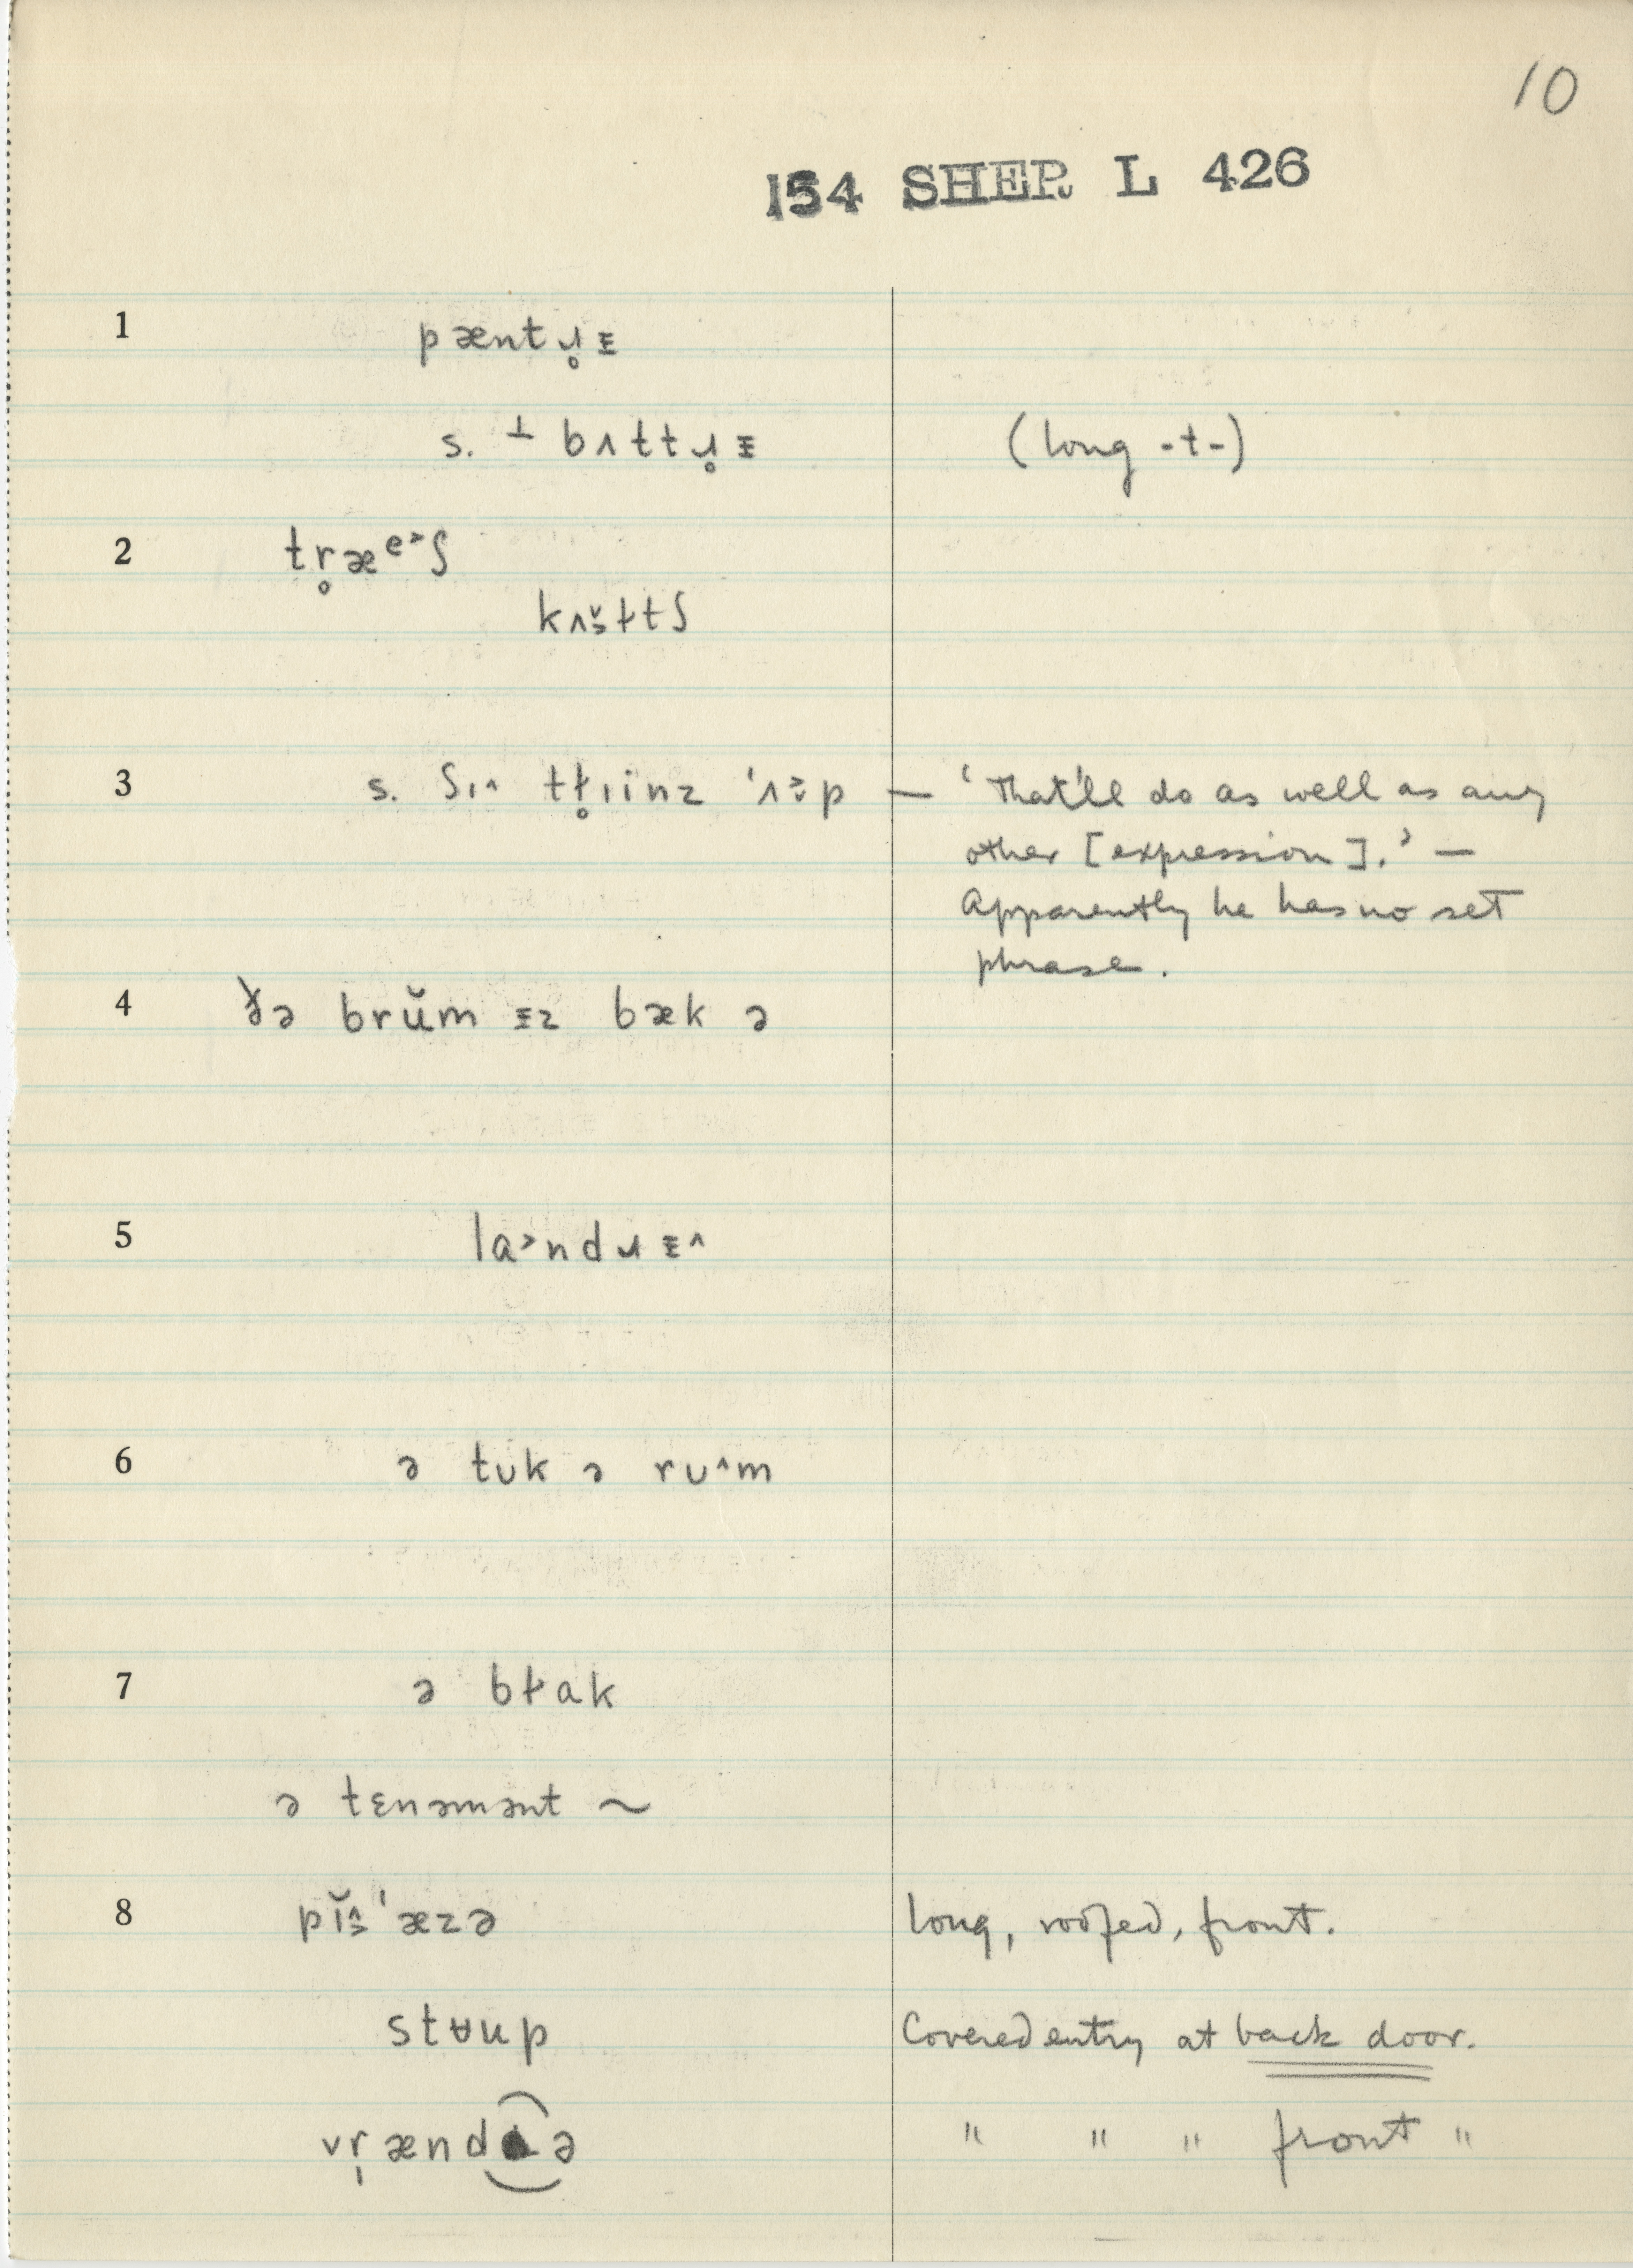 10
154 SHER L 426
1 pæntɹ̥ᵻ
s. ⊥ bʌttɹ̥ᵻ (long -t-)
2 tr̥æᵉ˃ʃ
kʌɜ̆ɫtʃ
3 s. ʃɪ˄ tɫ̥ɪinz 'ʌ˃p — ‘That'll do as well as any
other [expression].’ —
Apparently he has no set
phrase.
4 ðə brŭm ᵻz bæk ə
5 la˃ndɹᵻ˄
6 ə tʊk ə rʊ˄m
7 ə bɫak
ə tɛnəmənt ~
8 pĭɜ'æzə long, roofed, front.
stʉup Covered entry at back door.
vr̩ænd ə " " " front "